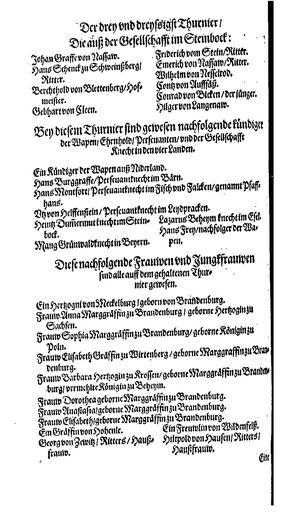 Der drey und dreyssigst Thurnier/
Die auß der Gesellschafft im Steinbock:
Johan Graffe von Nassaw.
Hans Schenck zu Schweinßberg/
Ritter.
Berchtholdt von Blettenberg/Hof-
meister.
Gebhart von Cleen.
Friderich vom Stein/Ritter.
Emerich von Nassaw/Ritter.
Wilhelm von Nesselrod.
Contz von Auffsäß.
Conrad von Bicken/der jünger.
Hilger von Langenaw.
Bey diesem Thurnier sind gewesen nachfolgende kündiger
der Wapen/Ehrnhold/Persevanten/und der Gesellschafft
Knecht in den vier Landen.
Ein Kündiger der Wapen auß Niderland.
Hans Burggraffe/Persevant knecht im Bärn.
Hans Montfort/Persevant knecht im Fisch und Falcken/genannt Pfaff-
hans.
Utz von Helffenstein/Persevant knecht im Leydpracken.
Heintz knecht im Stein-
bock.
Mang Grünwald knecht in Beyern.
Lazarus Beheym knecht im Esel.
Hans Frey/nachfolger der Wa-
pen.
Diese nachfolgende Frauwen und Jungkfrauwen
sind alle auff dem gehaltenen Thur-
nier gewesen.
Ein Hertzogin von Meckelburg/geborn von Brandenburg.
Frauw Anna Marggräffin zu Brandenburg/geborne Hertzogin zu
Sachsen.
Frauw Sophia Marggräffin zu Brandenburg/geborne Königin zu
Poln.
Frauw Elisabeth Gräffin zu Wirtenberg/geborne Marggräffin zu Bran-
denburg.
Frauw Barbara Hertzogin zu Krossen/geborne Marggräffin zu Branden-
burg/vermehlte Königin zu Beheym.
Frauw Dorothea geborne Marggräffin zu Brandenburg.
Frauw Anastasia/geborne Marggräffin zu Brandenburg.
Frauw Elisabeth/geborne Marggräffin zu Brandenburg.
Ein Gräffin von Hohenloe.
Georg von Zewitz/Ritters/Hauß-
frauw.
Ein Freuwlin von Wildenfelß.
Hiltpold von Hausen/Ritters/
Haußfrauw.